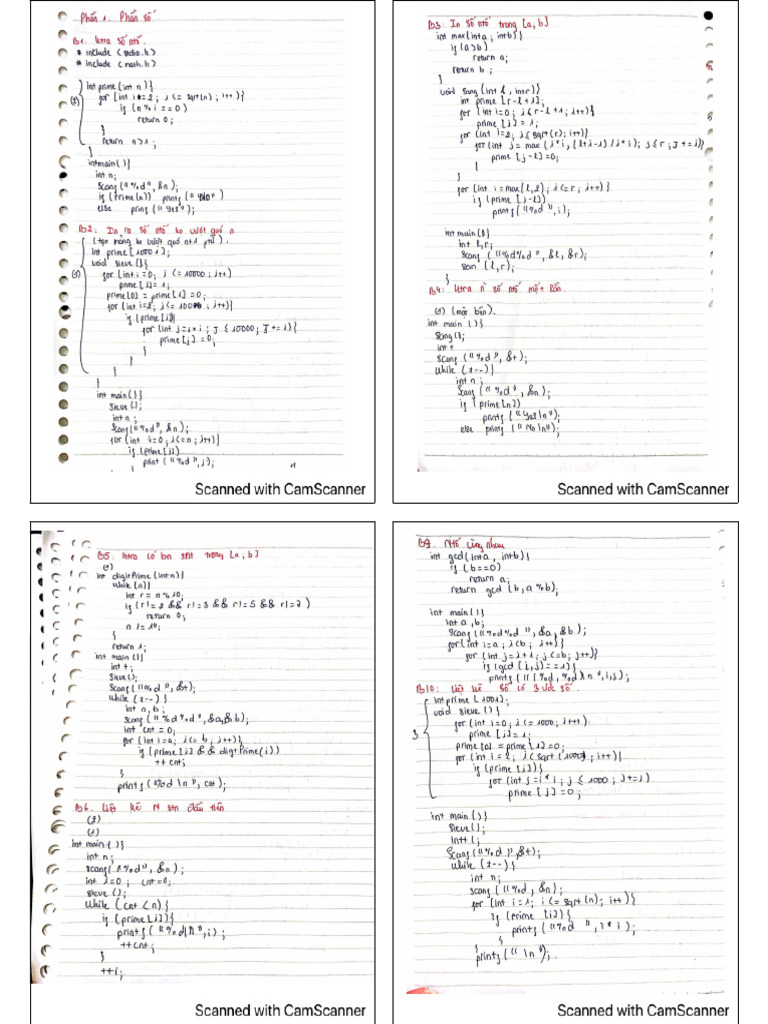 Phần 1. Phần số
B1. Ktra số ntố.
# include < stdio.h>
# include < math.h>
int prime (int n) {
(1) for (int i=2; i <= sqrt(n); i++) {
if (n % i == 0)
return 0;
}
return n>1;
}
int main () {
int n;
scanf ("%d", &n);
if (prime(n)) printf ("
else printf ("Yes");
B2: In ra số ntố ko vượt quá n
(tạo mảng ko vượt quá n+1 ptử).
int prime [
void sieve () {
(2) for (int i=0; i <= 10000; i++)
prime [i] = 1;
prime[0] = prime [1] = 0;
for (int i=2; i <= ; i++) {
if (prime [i])
for (int j=i*i; j ≤ 10000; j += i) {
prime [j] = 0;
}
}
}
}
int main () {
sieve ();
int n;
scanf ("%d", &n);
for (int i=0; i<=n; i++)
if (prime [i])
print ("%d", i);
Scanned with CamScanner
B3: In số ntố trong [a, b]
int max (int a, int b) {
if (a > b)
return a;
return b;
}
void sang (int l, int r) {
int prime [r-l+1];
for (int i=0; i ≤ r-l+1; i++) {
prime [i] = 1;
for (int i=2; i ≤ sqrt (r); i++) {
for (int j = max (i*i, (l+i-1) / i*i); j ≤ r; j += i) {
prime [j-l] = 0;
}
}
for (int i=max(l,2); i <= r; i++) {
if (prime [i-l])
printf ("%d", i);
int main () {
int l, r;
scanf ("%d%d", &l, &r);
san (l, r);
}
B4: Ktra n số ntố một lần.
(2)
int main () {
Sang ();
int t
scanf ("%d", &t);
while (t--) {
int n;
scanf ("%d", &n);
if (prime [n])
printf ("Yes\n");
else printf ("No\n");
Scanned with CamScanner
B5: Ktra có bn snt trong [a, b]
(2)
int digitPrime (int n) {
while (n) {
int r = n % 10;
if (r != 2 && r != 3 && r != 5 && r != 7)
return 0;
n /= 10;
}
return 1;
int main () {
int t;
sieve ();
scanf ("%d", &t);
while (t--) {
int a, b;
scanf ("%d%d", &a, &b);
int cnt = 0;
for (int i=a; i <= b; i++) {
if (prime [i] && digitPrime(i))
++ cnt;
}
printf (%d \n", cnt);
B6. Liệt kê N snt đầu tiên
(2)
(1)
int main () {
int n;
scanf ("%d", &n);
int i=0; cnt=0;
sieve ();
While (cnt < n) {
if (prime[i]) {
printf ("%d\n", i);
++cnt;
}
++i;
Scanned with CamScanner
B9. Ntố cùng nhau
int gcd (int a, int b) {
if (b==0)
return a;
return gcd (b, a%b);
int main () {
int a, b;
scanf ("%d%d", &a, &b);
for (int i=a; i<b; i++) {
for (int j=i+1; j<=b; j++) {
if (gcd (i, j) == 1) {
printf ("(%d, %d)\n", i, j);
B10: Liệt kê số có 3 ước số.
int prime [1001];
void sieve () {
for (int i=0; i <= 1000; i++)
prime [i] = 1;
prime [0] = prime [1] = 0;
for (int i=2; i<sqrt (1000); i++) {
if (prime [i]) {
for (int j=i*i; j ≤ 1000; j+=i)
prime [j] = 0;
int main () {
sieve ();
int t;
scanf ("%d", &t);
while (t--) {
int n;
scanf ("%d, &n);
for (int i=1; i <= sqrt (n); i++) {
if (prime [i]) {
printf ("%d ", i*i);
}
}
printf ("\n");
Scanned with CamScanner